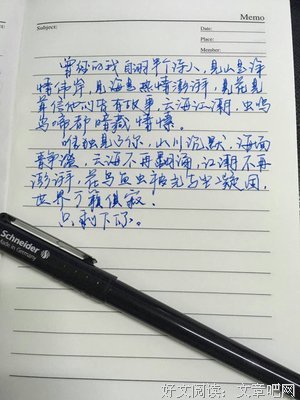 Memo
Subject:
Date:
Place:
Member:
曾经的我自诩半个诗人，见山是深
情伟岸，见海是热情澎湃，见花见
草信他们皆有故事，云海江潮，虫鸣
鸟啼都暗藏情愫。
唯独见了你，山川沉默，海面
静谧，云海不再翻涌，江潮不再
澎湃，花鸟鱼虫被光与尘凝固，
世界万籁俱寂。
只剩下你。
Schneider
Made in Germany
好文阅读：文章吧网